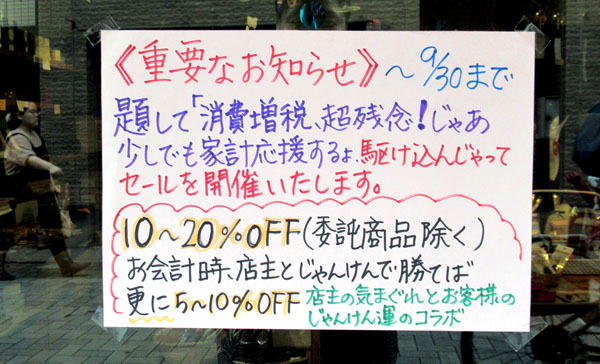 《重要なお知らせ》～9/30まで
題して「消費増税、超残念！じゃあ
少しでも家計応援するよ、駆け込んじゃって
セールを開催いたします。
10～20%OFF(委託商品除く)
お会計時、店主とじゃんけんで勝てば
更に5～10%OFF 店主の気まぐれとお客様の
じゃんけん運のコラボ